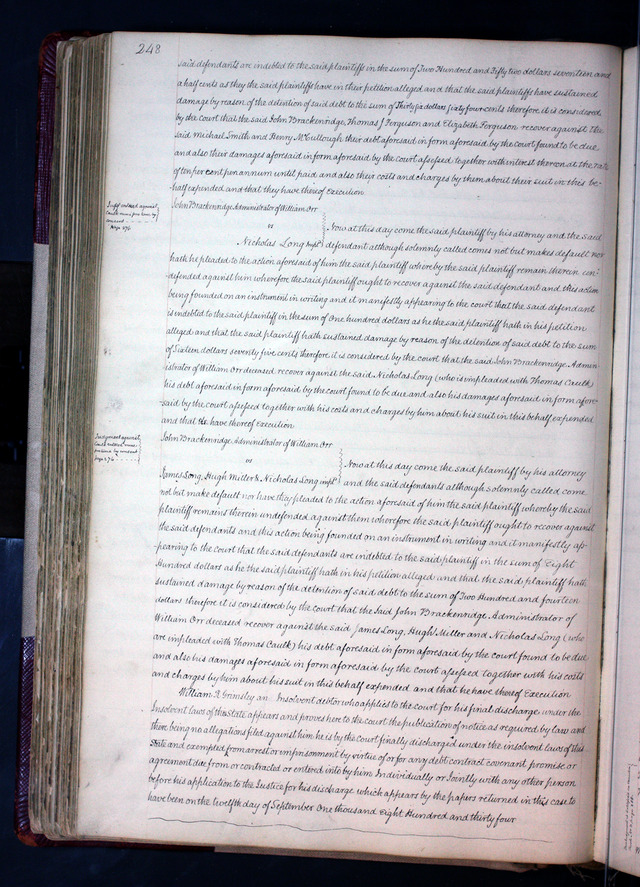 248
said defendants are indebted to the said plaintiffs in the sum of Two Hundred and Fifty two dollars seventeen and
a half cents as they the said plaintiffs have in their petition alleged and that the said plaintiffs have sustained
damage by reason of the detention of said debt to the sum of Thirty six dollars sixty four cents therefore it is considered
by the court that the said John Brackenridge, Thomas J Ferguson and Elizabeth Ferguson recover against the
said Michael Smith and Henry McCullough their debt aforesaid in form aforesaid by the court found to be due
and also their damages aforesaid in form aforesaid by the court assessed together with interest thereon at the rate
of ten per cent per annum until paid and also their costs and charges by them about their suit in this be-
half expended and that they have thereof Execution
John Brackenridge Administrator of William Orr
vs
Now at this day come the said plaintiff by his attorney and the said
Nicholas Long impl. defendant although solemnly called comes not but makes default nor
hath he pleaded to the action aforesaid of him the said plaintiff whereby the said plaintiff remain therein un-
defended against him wherefore the said plaintiff ought to recover against the said defendant and this action
being founded on an instrument in writing and it manifestly appearing to the court that the said defendant
is indebted to the said plaintiff in the sum of One hundred dollars as he the said plaintiff hath in his petition
alleged and that the said plaintiff hath sustained damage by reason of the detention of said debt to the sum
of Sixteen dollars seventy five cents therefore it is considered by the court that the said John Brackenridge Admin-
istrator of William Orr deceased recover against the said Nicholas Long (who is impleaded with Thomas Caulk)
his debt aforesaid in form aforesaid by the court found to be due and also his damages aforesaid in form afore-
said by the court assessed together with his costs and charges by him about his suit in this behalf expended
and that he have thereof execution
Judgment against
Caulk
consent
page 276
John Brackenridge Administrator of William Orr
vs
Now at this day come the said plaintiff by his attorney
James Long, Hugh Miller & Nicholas Long impl. and the said defendants although solemnly called come
not but make default nor have they pleaded to the action aforesaid of him the said plaintiff whereby the said
plaintiff remains therein undefended against them wherefore the said plaintiff ought to recover against
the said defendants and this action being founded on an instrument in writing and it manifestly ap-
pearing to the court that the said defendants are indebted to the said plaintiff in the sum of Eight
Hundred dollars as he the said plaintiff hath in his petition alleged and that the said plaintiff hath
sustained damage by reason of the detention of said debt to the sum of Two Hundred and fourteen
dollars therefore it is considered by the court that the said John Brackenridge Administrator of
William Orr deceased recover against the said James Long, Hugh Miller and Nicholas Long (who
are impleaded with Thomas Caulk) his debt aforesaid in form aforesaid by the court found to be due
and also his damages aforesaid in form aforesaid by the court assessed together with his costs
and charges by him about his suit in this behalf expended and that he have thereof Execution
Judgment against
Caulk
by consent
page 276
William R Grimsley an Insolvent debtor who applies to the court for his final discharge under the
Insolvent laws of this State appears and proves here to the court the publication of notice as required by law and
there being no allegations filed against him he is by the court finally discharged under the insolvent laws of this
State and exempted from arrest or imprisonment by virtue of or for any debt contract covenant promise or
agreement due from or contracted or entered into by him Individually or Jointly with any other person
before his application to the Justice for his discharge which appears by the papers returned in this case to
have been on the twelfth day of September One thousand Eight Hundred and thirty four